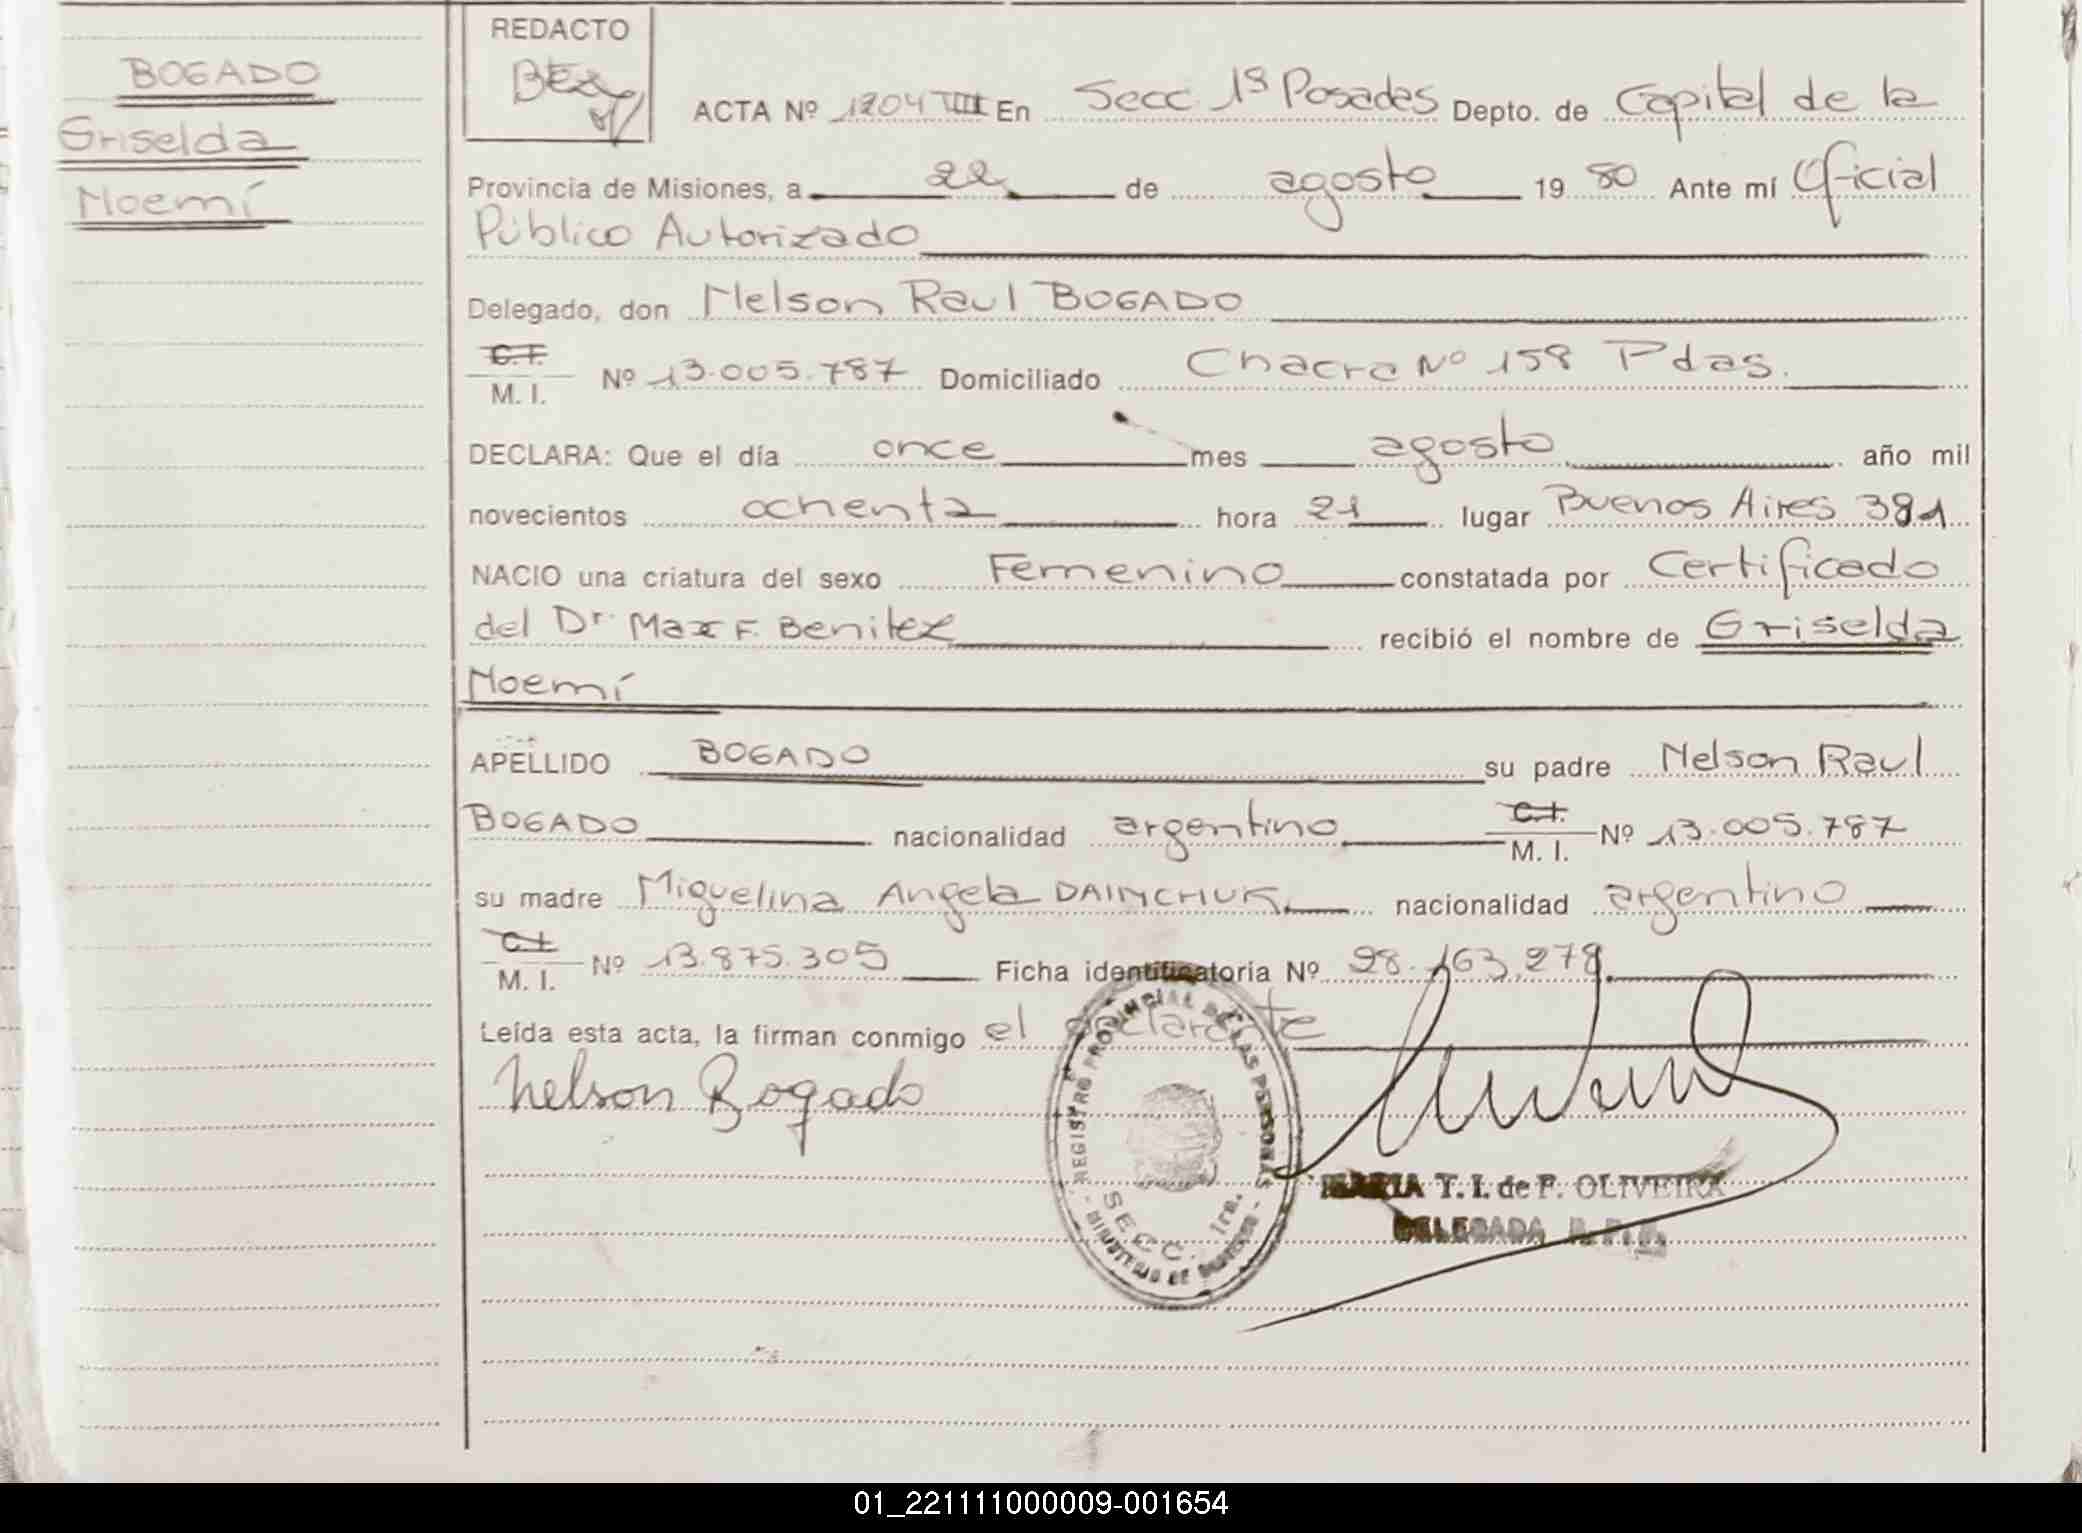 BOGADO
Griselda
Noemí
REDACTO
ACTA Nº 1204 VIII En Secc 1ª Posadas Depto. de Capital de la
Provincia de Misiones, a 22 de agosto 19 80 Ante mí Oficial
Público Autorizado
Delegado, don Nelson Raul BOGADO
C.I.
M. I. Nº 13.005.787 Domiciliado Chacra Nº 158 Pdas.
DECLARA: Que el día once mes agosto año mil
novecientos ochenta hora 21 lugar Buenos Aires 381
NACIO una criatura del sexo Femenino constatada por Certificado
del Dr. Max F. Benitez recibió el nombre de Griselda
Noemí
APELLIDO BOGADO su padre Nelson Raul
BOGADO nacionalidad argentino C.I. M. I. Nº 13.005.787
su madre Miguelina Angela DAINCHUK nacionalidad argentino
C.I. M. I. Nº 13.875.305 Ficha identificatoria Nº 28.163.279
Leída esta acta, la firman conmigo el declarante
Nelson Bogado
REGISTRO PROVINCIAL DE LAS PERSONAS
SECC. 1ra.
MINISTERIO DE GOBIERNO
MARIA T. I. de F. OLIVEIRA
DELEGADA R. P. P.
01_221111000009-001654